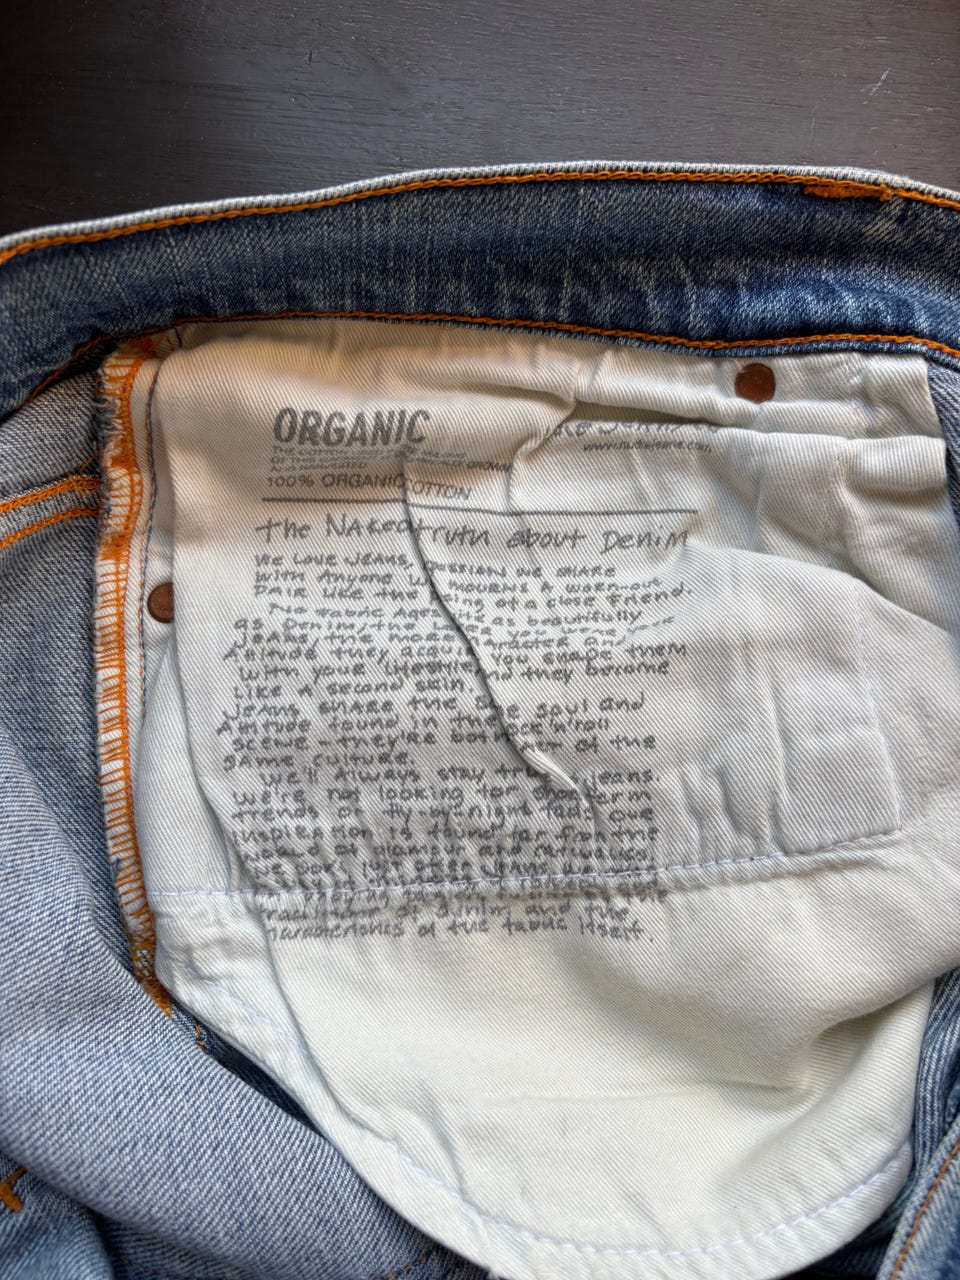 ORGANIC
www.nudiejeans.com
THE COTTON USED
OF THIS GROWN
AND HARVESTED
100% ORGANIC COTTON
The Naked truth about Denim
WE LOVE JEANS, PASSION WE SHARE
with Anyone MOURNS A worn-out
PAIR LIKE the of a close friend.
No fabric Ages as beautifully
as Denim, the you
JEANS, the more character and
Attitude they acquire. You shape them
with your lifestyle and they become
Like A second skin.
Jeans share the soul and
Attitude found in the rock'n'roll
scene - they're both part of the
same culture.
We'll Always stay true jeans.
We're not looking for short-term
trends or fly-by-night fads. Our
inspiration is found far from the
world of glamour and
the
traditions of denim and the
characteristics of the fabric itself.